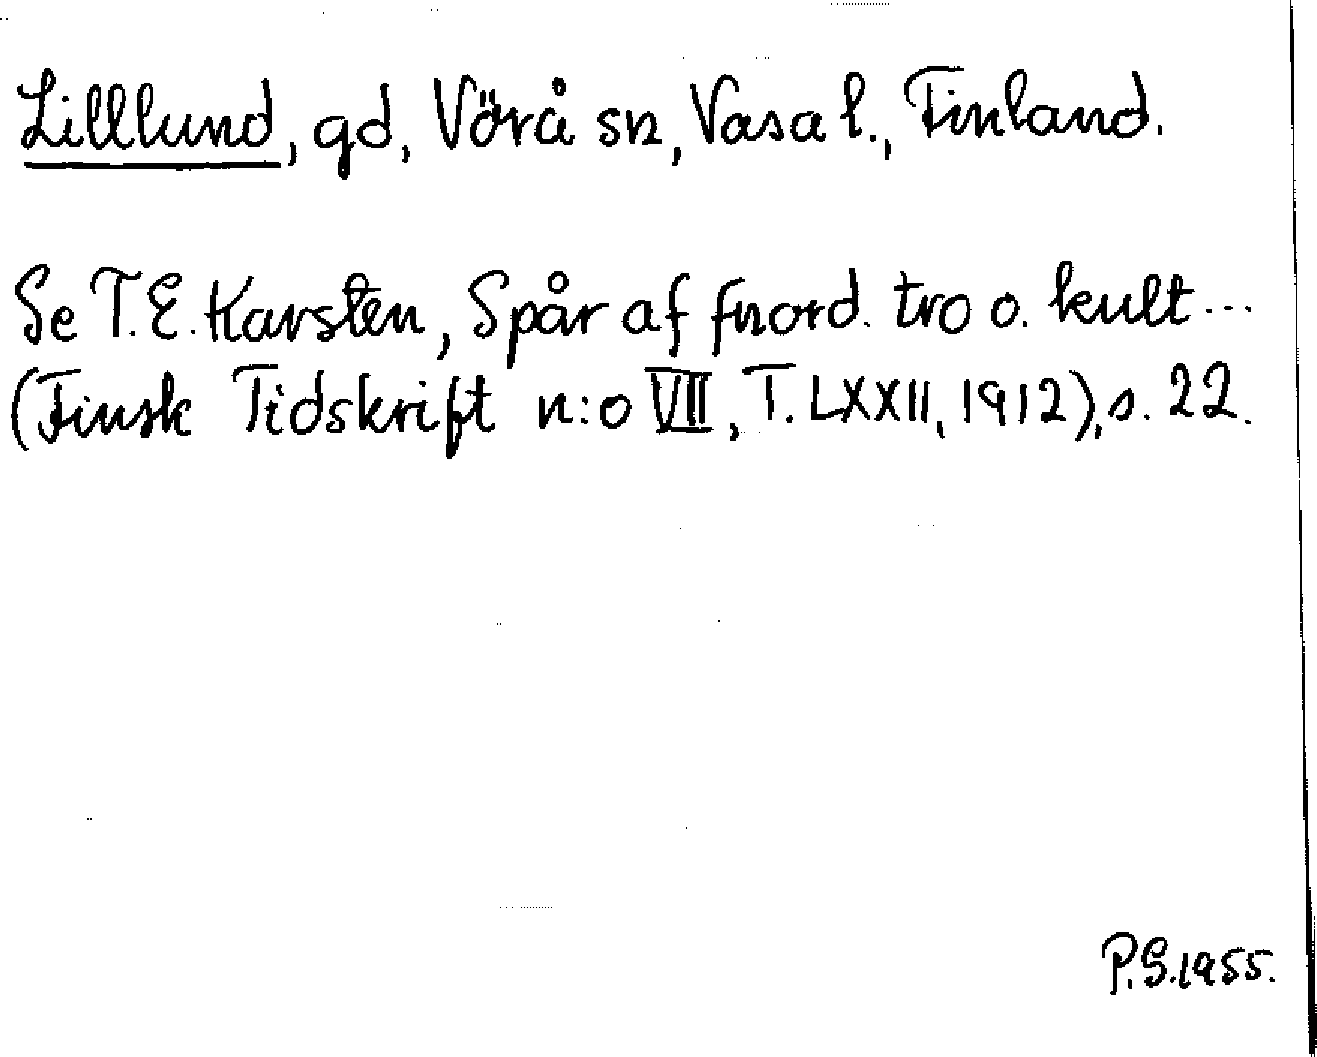 Lilllund, gd, Vörå sn, Vasa l., Finland.
Se T. E. Karsten, Spår af fnord. tro o. kult...
(Finsk Tidskrift n:o VII, T. LXXII, 1912), s. 22.
P.S. 1955.